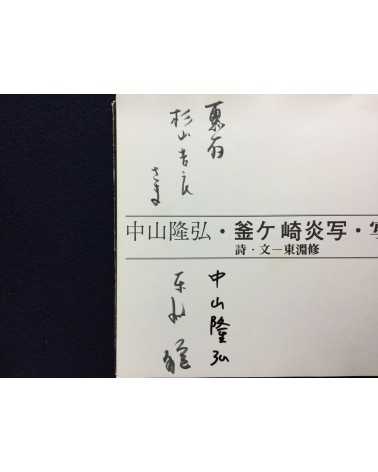 恵存
杉山吉良
さま
中山隆弘・釜ケ崎炎写・写
詩・文—東淵修
中山隆弘
東淵修